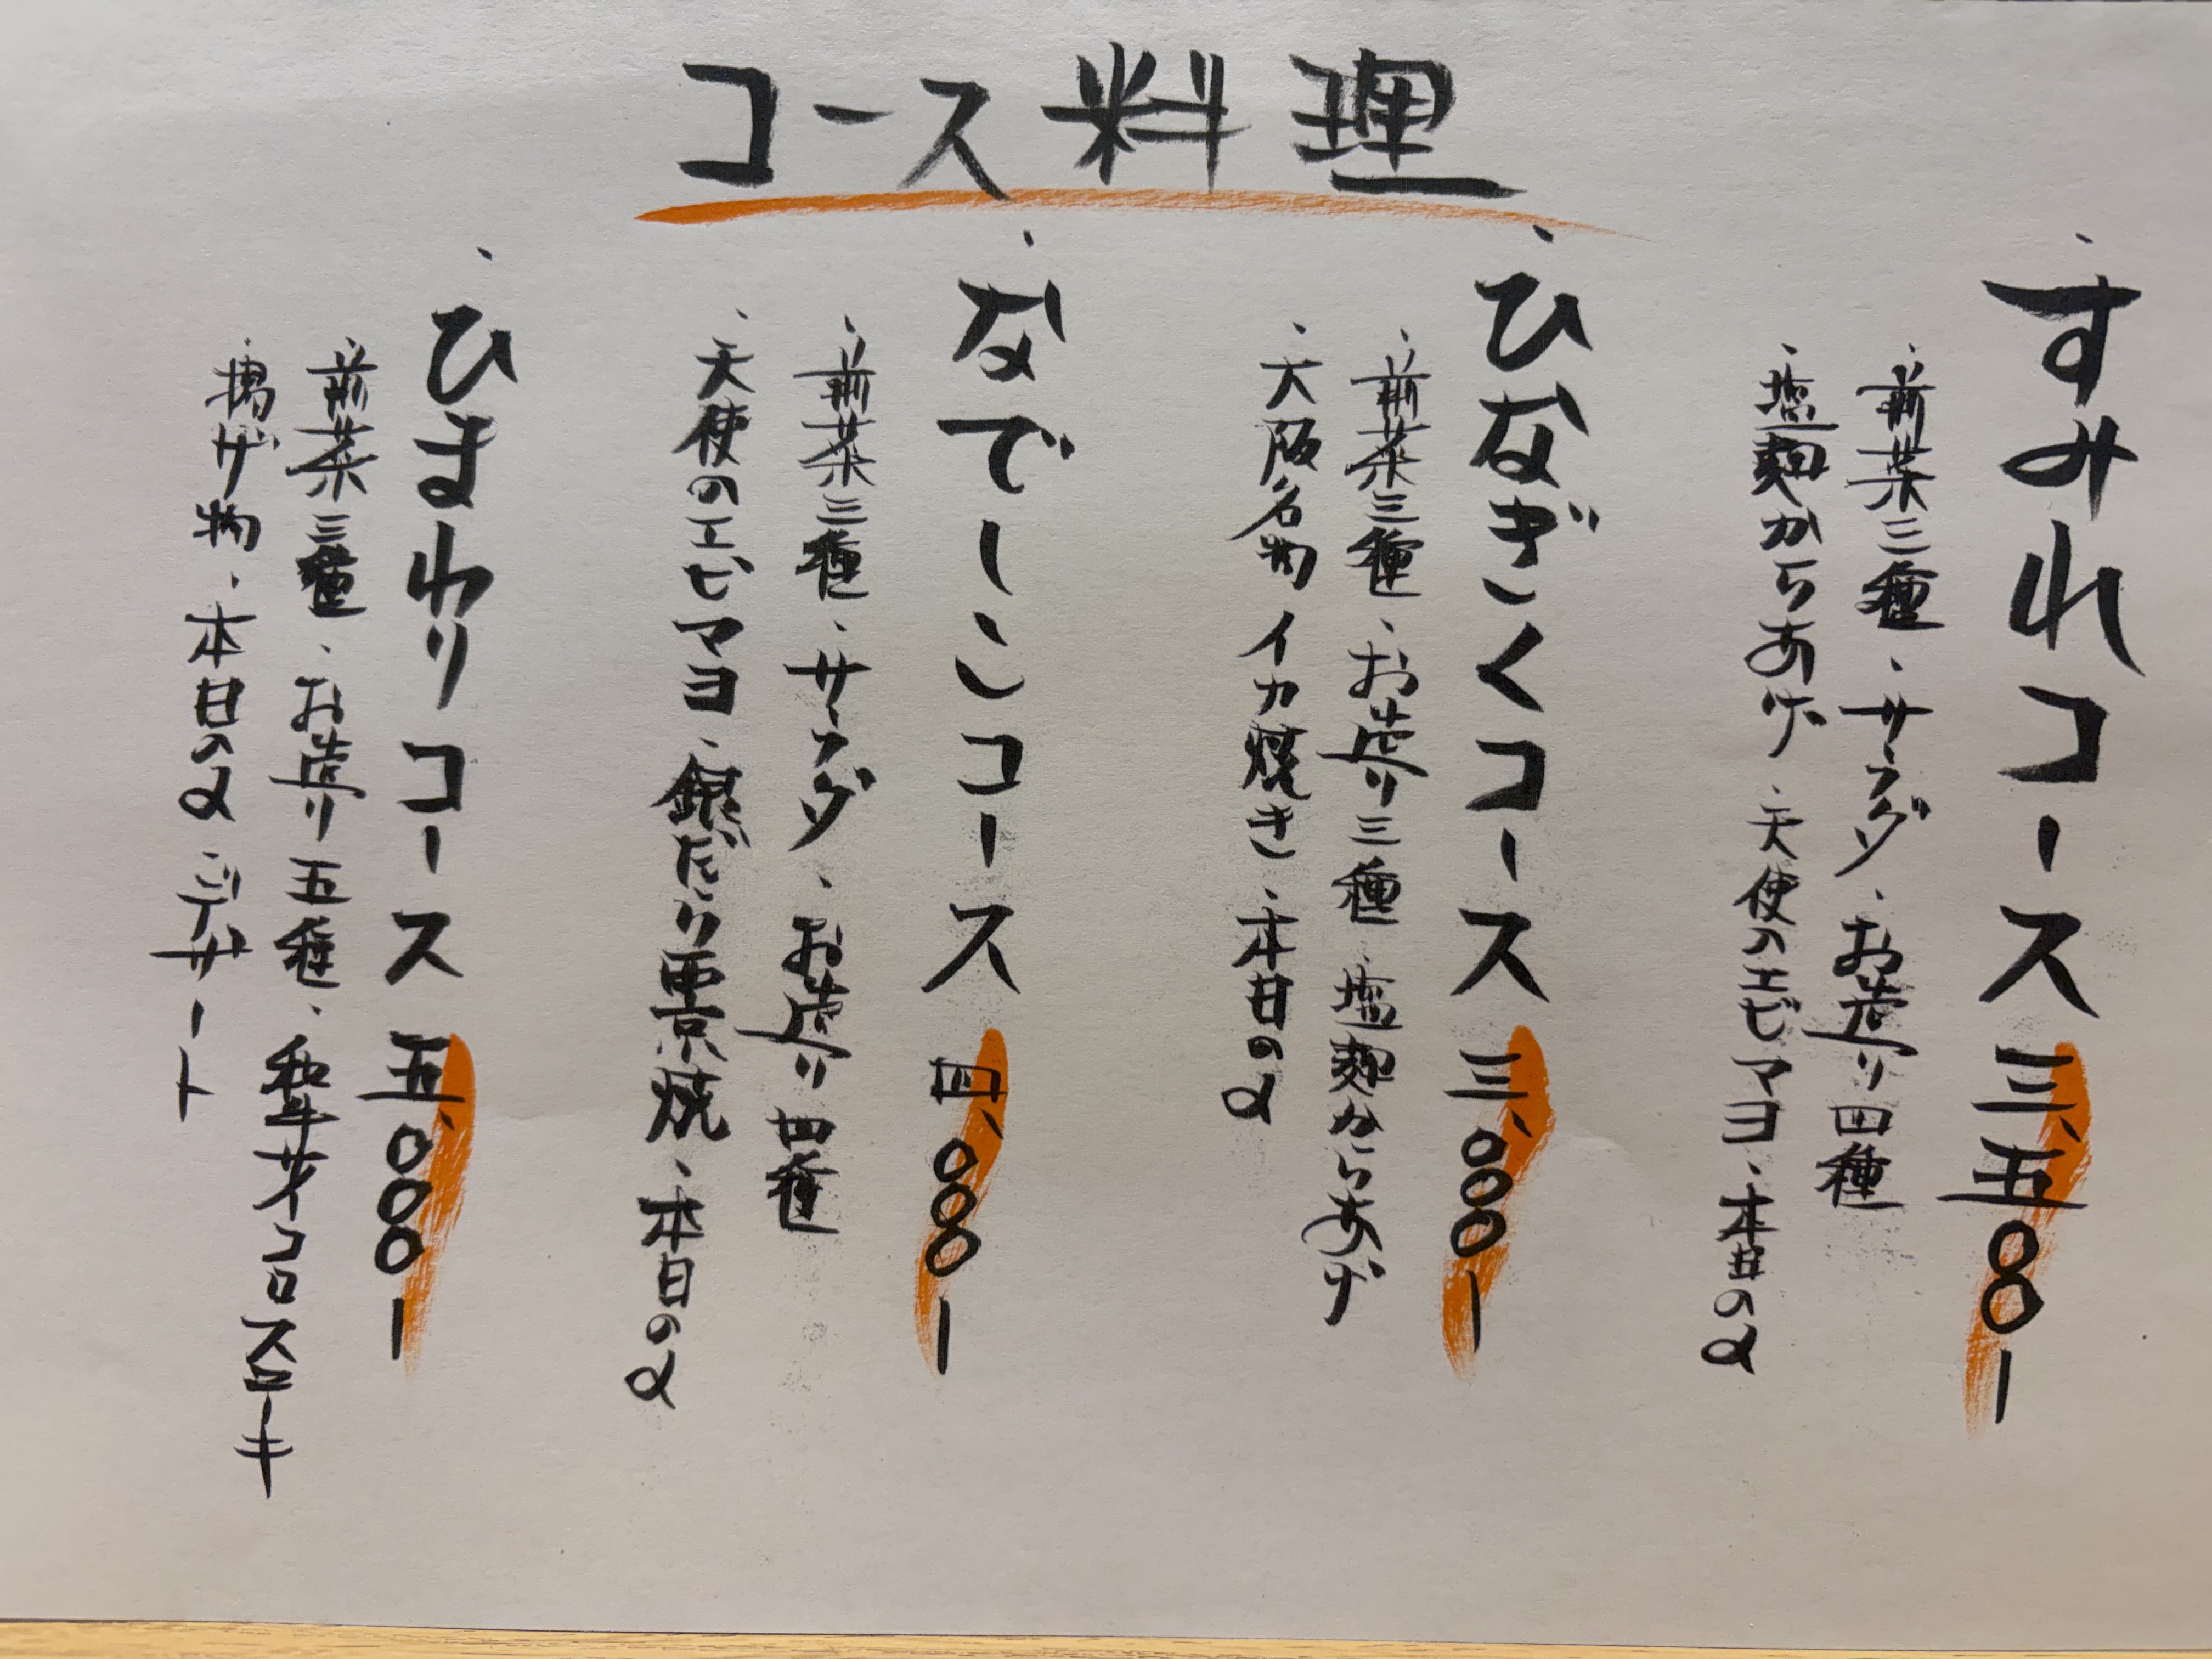 コース料理
・すみれコース 三、五〇〇ー
・前菜三種・サラダ・お造り四種
・塩麹からあげ・天使のエビマヨ・本日の〆
・ひなぎくコース 三、〇〇〇ー
・前菜三種・お造り三種・塩麹からあげ
・大阪名物イカ焼き・本日の〆
・なでしこコース 四、〇〇〇ー
・前菜三種・サラダ・お造り四種
・天使のエビマヨ・銀だり西京焼・本日の〆
・ひまわりコース 五、〇〇〇ー
・前菜三種・お造り五種・和牛サイコロステーキ
・揚げ物・本日の〆・デザート